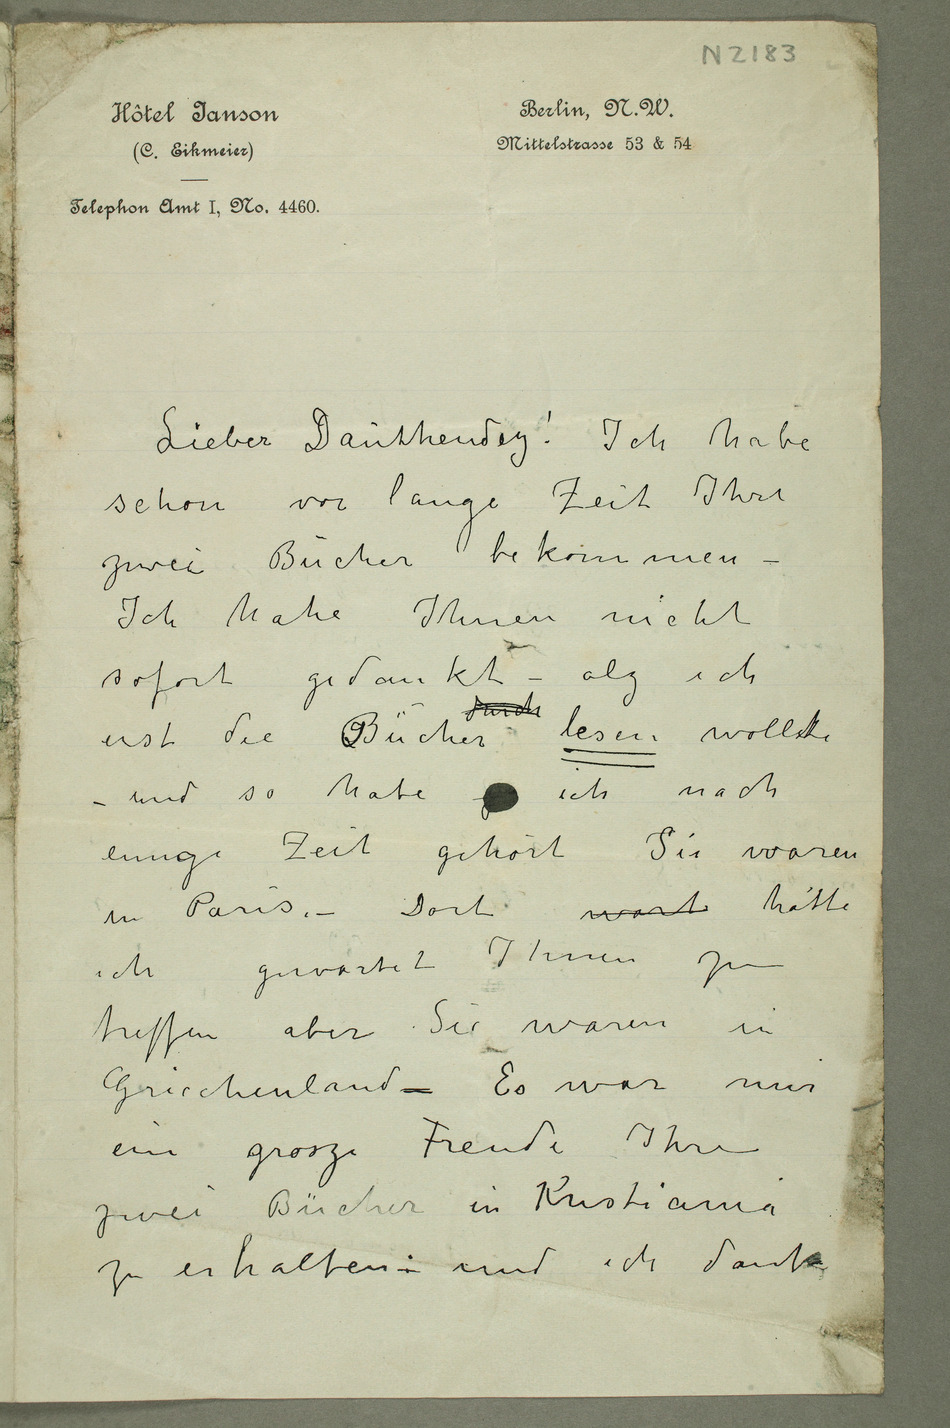 N 2183
Hôtel Janson
(C. Eikmeier)
Telephon Amt I, No. 4460.
Berlin, N.W.
Mittelstrasse 53 & 54
Lieber Dauthendey! Ich habe
schon vor lange Zeit Ihre
zwei Bücher bekommen –
Ich habe Ihnen nicht
sofort gedankt – alz ich
erst die Bücher durch lesen wollte
– und so habe ich nach
einige Zeit gehört Sie waren
in Paris. – Dort wart hätte
ich gewartet Ihnen zu
treffen aber Sie waren in
Griechenland – Es war mir
ein grosze Freude Ihre
zwei Bücher in Kristiania
zu erhalten – und ich dank